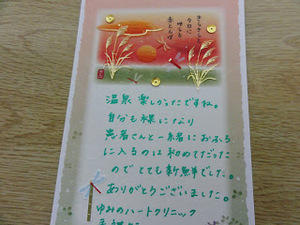 きらきらと
今日に
映える
赤とんぼ
温泉楽しかったですね。
自分も裸になり
患者さんと一緒におふろ
に入るのは初めてだった
のでとても新鮮でした。
ありがとうございました。
ゆみのハートクリニック